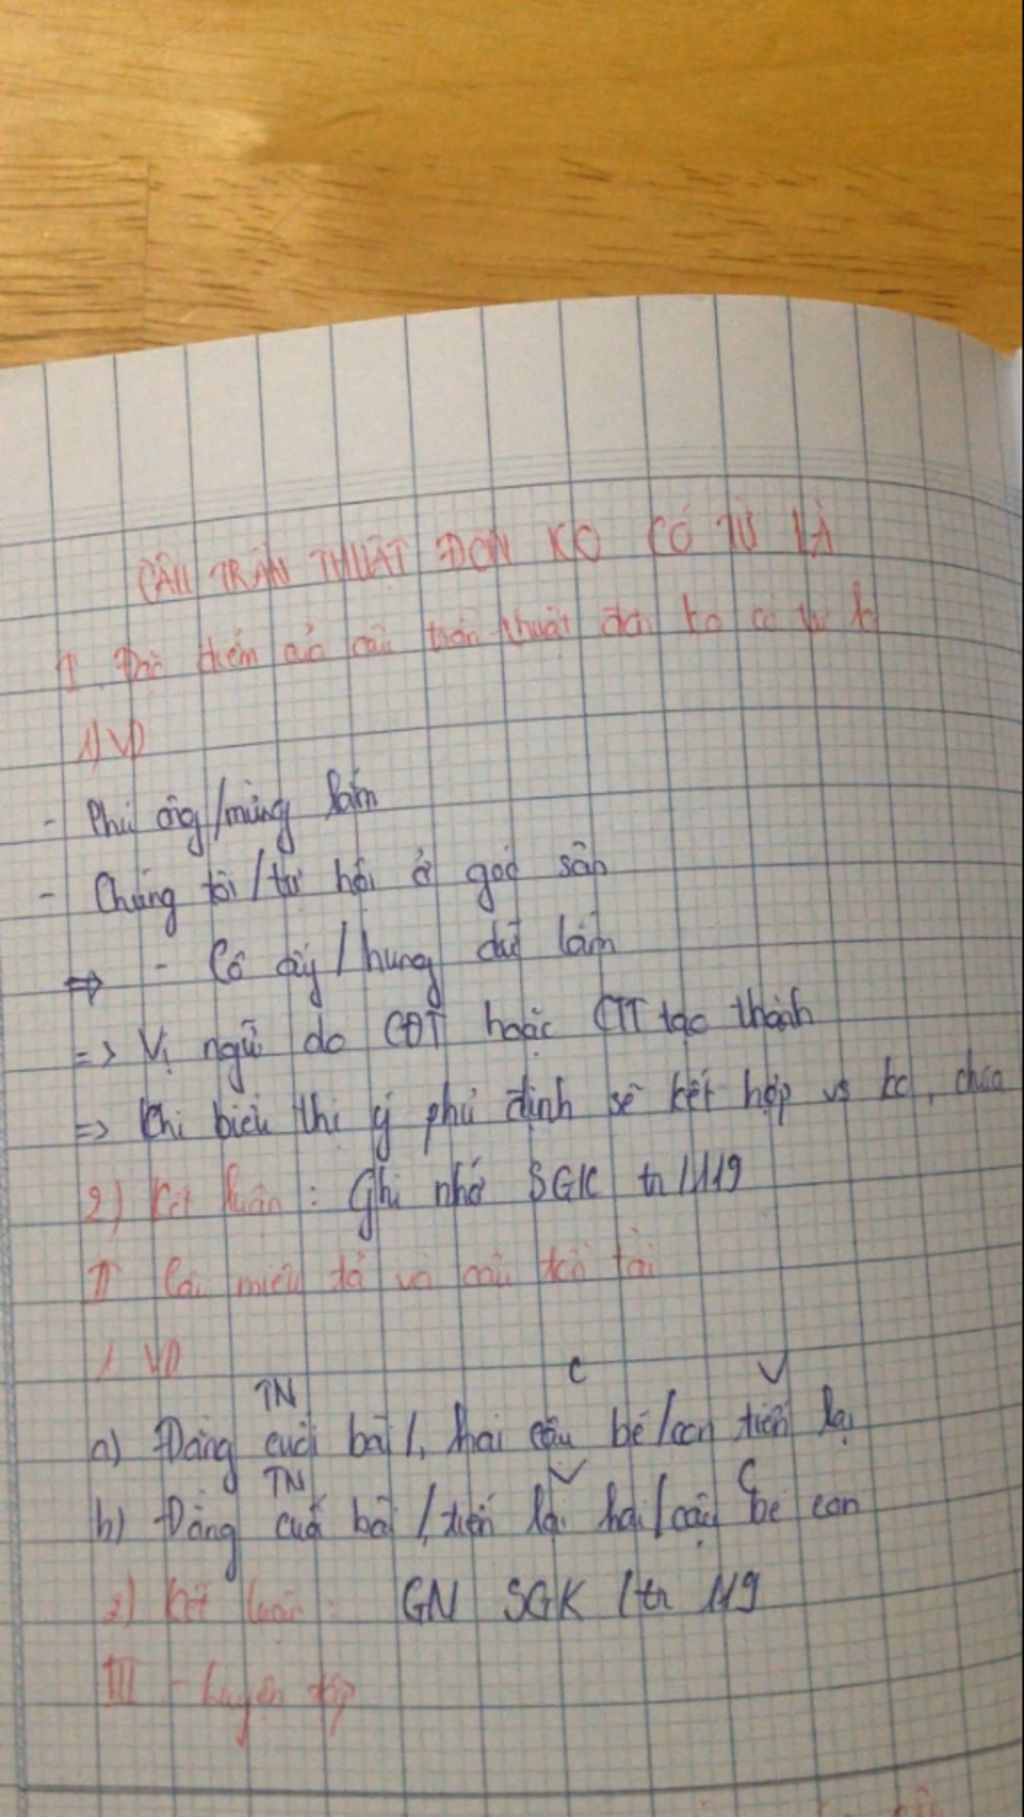 CÂU TRẦN THUẬT ĐƠN KO CÓ TỪ LÀ
I. Đặc điểm của câu trần thuật đơn ko có từ là
1) VD
- Phú ông / mừng lắm
- Chúng tôi / tụ hội ở góc sân
=> - Cô ấy / hung dữ lắm
=> Vị ngữ do CĐT hoặc CTT tạo thành
=> Khi biểu thị ý phủ định sẽ kết hợp vs ko, chưa
2) Kết luận : Ghi nhớ SGK tr/119
II Câu miêu tả và câu tồn tại
1 VD
TN C V
a) Đằng cuối bãi /, hai cậu bé / con tiến lại
TN V C
b) Đằng cuối bãi /, tiến lại hai / cậu bé con
2) Kết luận : GN SGK / tr 119
III - Luyện tập